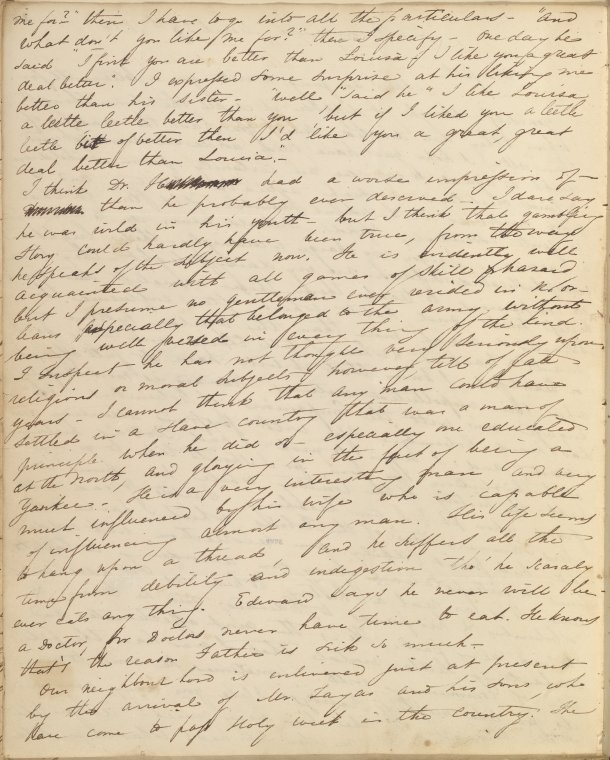 me for?" then I have to go into all the particulars - "and
what don't you like me for?" then I specify - One day he
said "I pink you are better than Louisa & I like you a great
deal better". I expressed some surprise at his liking me
better than his sister - "well" said he "I like Louisa
a leetle leetle better than you, but if I liked you a leetle
leetle bit of better then I'd like you a great, great
deal better than Louisa". -
I think Dr. had a worse impression of -
than he probably ever deserved - I dare say
he was wild in his youth - but I think that gambling
story could hardly have been true, from the way
he speaks of the subject now. He is evidently well
acquainted with all games of skill & hazard
but I presume no gentleman ever resided in N. Or-
leans especially that belonged to the army without
being well versed in every thing of the kind.
I suspect he has not thought very seriously upon
religious or moral subjects however till of late
years - I cannot think that any man could have
settled in a slave country that was a man of
principle when he did so - especially one educated
at the North, and glorying in the fact of being a
Yankee. He is a very interesting man, and very
much influenced by his wife who is capable
of influencing almost any man. His life seems
to hang upon a thread, and he suffers all the
time from debility and indigestion tho' he scarcely
ever eats any thing. Edward says he never will be
a Doctor, for Doctors never have time to eat. He knows
that's the reason Father is sick so much -
Our neighbourhood is enlivened just at present
by the arrival of Mr. Zayas and his sons, who
have come to pass Holy week in the country. The